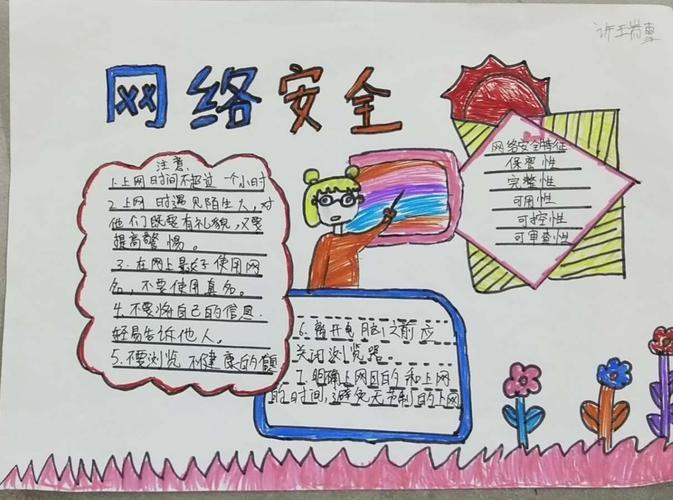 网络安全
注意
1.上网时间不超过一个小时
2.上网时遇见陌生人,对
他们既要有礼貌,又要
提高警惕。
3.在网上最好使用网
名,不要使用真名。
4.不要将自己的信息
轻易告诉他人。
5.不要浏览不健康的
6.离开电脑之前应
关闭浏览器。
7.明确上网目的和上网
的时间,避免无节制的上网
网络安全特征
保密性
完整性
可用性
可控性
可审查性